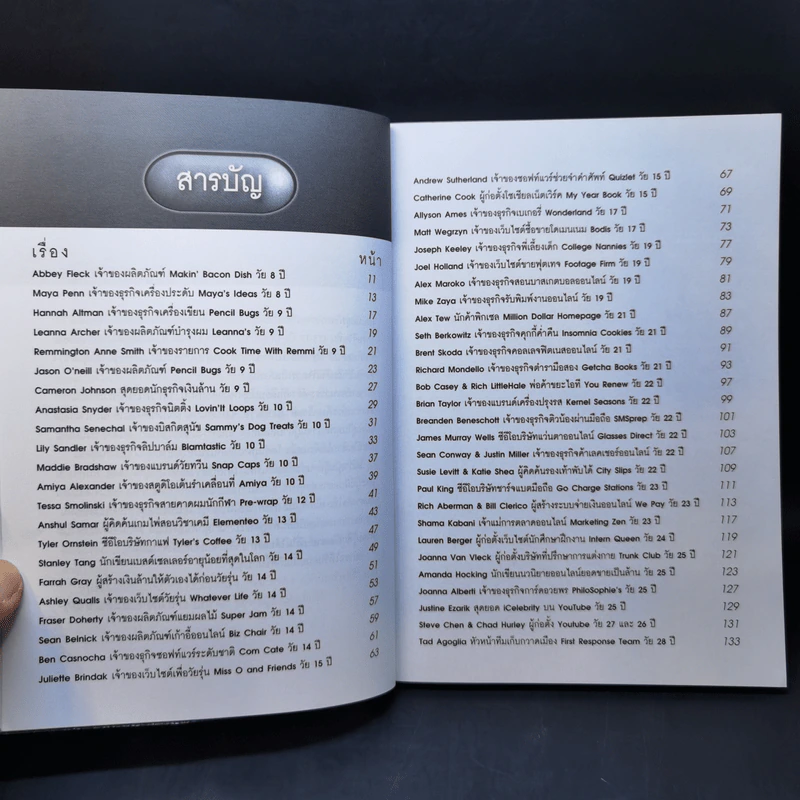 สารบัญ
เรื่อง หน้า
Abbey Fleck เจ้าของผลิตภัณฑ์ Makin' Bacon Dish วัย 8 ปี 11
Maya Penn เจ้าของธุรกิจเครื่องประดับ Maya's Ideas วัย 8 ปี 13
Hannah Altman เจ้าของธุรกิจเครื่องเขียน Pencil Bugs วัย 9 ปี 17
Leanna Archer เจ้าของผลิตภัณฑ์บำรุงผม Leanna's วัย 9 ปี 19
Remmington Anne Smith เจ้าของรายการ Cook Time With Remmi วัย 9 ปี 21
Jason O'neill เจ้าของผลิตภัณฑ์ Pencil Bugs วัย 9 ปี 23
Cameron Johnson สุดยอดนักธุรกิจเงินล้าน วัย 9 ปี 27
Anastasia Snyder เจ้าของธุรกิจนิตติ้ง Lovin'It Loops วัย 10 ปี 29
Samantha Senechal เจ้าของบิสกิตสุนัข Sammy's Dog Treats วัย 10 ปี 31
Lily Sandler เจ้าของธุรกิจลิปบาล์ม Blamtastic วัย 10 ปี 33
Maddie Bradshaw เจ้าของแบรนด์วัยทวีน Snap Caps วัย 10 ปี 37
Amiya Alexander เจ้าของสตูดิโอเต้นรำเคลื่อนที่ Amiya วัย 10 ปี 41
Tessa Smolinski เจ้าของธุรกิจสายคาดผมนักกีฬา Pre-wrap วัย 12 ปี 43
Anshul Samar ผู้คิดค้นเกมไพ่สอนวิชาเคมี Elementeo วัย 13 ปี 47
Tyler Ornstein ซีอีโอบริษัทกาแฟ Tyler's Coffee วัย 13 ปี 49
Stanley Tang นักเขียนเบสต์เซลเลอร์อายุน้อยที่สุดในโลก วัย 14 ปี 51
Farrah Gray ผู้สร้างเงินล้านให้ตัวเองได้ก่อนวัยรุ่น วัย 14 ปี 53
Ashley Qualls เจ้าของเว็บไซต์วัยรุ่น Whatever Life วัย 14 ปี 57
Fraser Doherty เจ้าของผลิตภัณฑ์แยมผลไม้ Super Jam วัย 14 ปี 59
Sean Belnick เจ้าของผลิตภัณฑ์เก้าอี้ออนไลน์ Biz Chair วัย 14 ปี 61
Ben Casnocha เจ้าของธุกิจซอฟท์แวร์ระดับชาติ Com Cate วัย 14 ปี 63
Juliette Brindak เจ้าของเว็บไซต์เพื่อวัยรุ่น Miss O and Friends วัย 15 ปี
Andrew Sutherland เจ้าของซอฟท์แวร์ช่วยจำคำศัพท์ Quizlet วัย 15 ปี 67
Catherine Cook ผู้ก่อตั้งโซเชียลเน็ตเวิร์ค My Year Book วัย 15 ปี 69
Allyson Ames เจ้าของธุรกิจเบเกอรี่ Wonderland วัย 17 ปี 71
Matt Wegrzyn เจ้าของเว็บไซต์ซื้อขายโดเมนเนม Bodis วัย 17 ปี 73
Joseph Keeley เจ้าของธุรกิจพี่เลี้ยงเด็ก College Nannies วัย 19 ปี 77
Joel Holland เจ้าของเว็บไซต์ขายฟุตเทจ Footage Firm วัย 19 ปี 79
Alex Maroko เจ้าของธุรกิจสอนบาสเกตบอลออนไลน์ วัย 19 ปี 81
Mike Zaya เจ้าของธุรกิจรับพิมพ์งานออนไลน์ วัย 19 ปี 83
Alex Tew นักค้าพิกเซล Million Dollar Homepage วัย 21 ปี 87
Seth Berkowitz เจ้าของธุรกิจคุกกี้ค่ำคืน Insomnia Cookies วัย 21 ปี 89
Brent Skoda เจ้าของธุรกิจคอลเลจฟิตเนสออนไลน์ วัย 21 ปี 91
Richard Mondello เจ้าของธุรกิจตำรามือสอง Getcha Books วัย 21 ปี 93
Bob Casey & Rich LittleHale พ่อค้าขยะไอที You Renew วัย 22 ปี 97
Brian Taylor เจ้าของแบรนด์เครื่องปรุงรส Kernel Seasons วัย 22 ปี 99
Breanden Beneschott เจ้าของธุรกิจติวน้องผ่านมือถือ SMSprep วัย 22 ปี 101
James Murray Wells ซีอีโอบริษัทแว่นตาออนไลน์ Glasses Direct วัย 22 ปี 103
Sean Conway & Justin Miller เจ้าของธุรกิจค้าเลคเชอร์ออนไลน์ วัย 22 ปี 107
Susie Levitt & Katie Shea ผู้คิดค้นรองเท้าพับได้ City Slips วัย 22 ปี 109
Paul King ซีอีโอบริษัทชาร์จแบตมือถือ Go Charge Stations วัย 23 ปี 111
Rich Aberman & Bill Clerico ผู้สร้างระบบจ่ายเงินออนไลน์ We Pay วัย 23 ปี 113
Shama Kabani เจ้าแม่การตลาดออนไลน์ Marketing Zen วัย 23 ปี 117
Lauren Berger ผู้ก่อตั้งเว็บไซต์นักศึกษาฝึกงาน Intern Queen วัย 24 ปี 119
Joanna Van Vleck ผู้ก่อตั้งบริษัทที่ปรึกษาการแต่งกาย Trunk Club วัย 25 ปี 121
Amanda Hocking นักเขียนนวนิยายออนไลน์ยอดขายเป็นล้าน วัย 25 ปี 123
Joanna Alberti เจ้าของธุรกิจการ์ดอวยพร PhiloSophie's วัย 25 ปี 127
Justine Ezarik สุดยอด iCelebrity บน YouTube วัย 25 ปี 129
Steve Chen & Chad Hurley ผู้ก่อตั้ง Youtube วัย 27 และ 26 ปี 131
Tad Agoglia หัวหน้าทีมเก็บกวาดเมือง First Response Team วัย 28 ปี 133